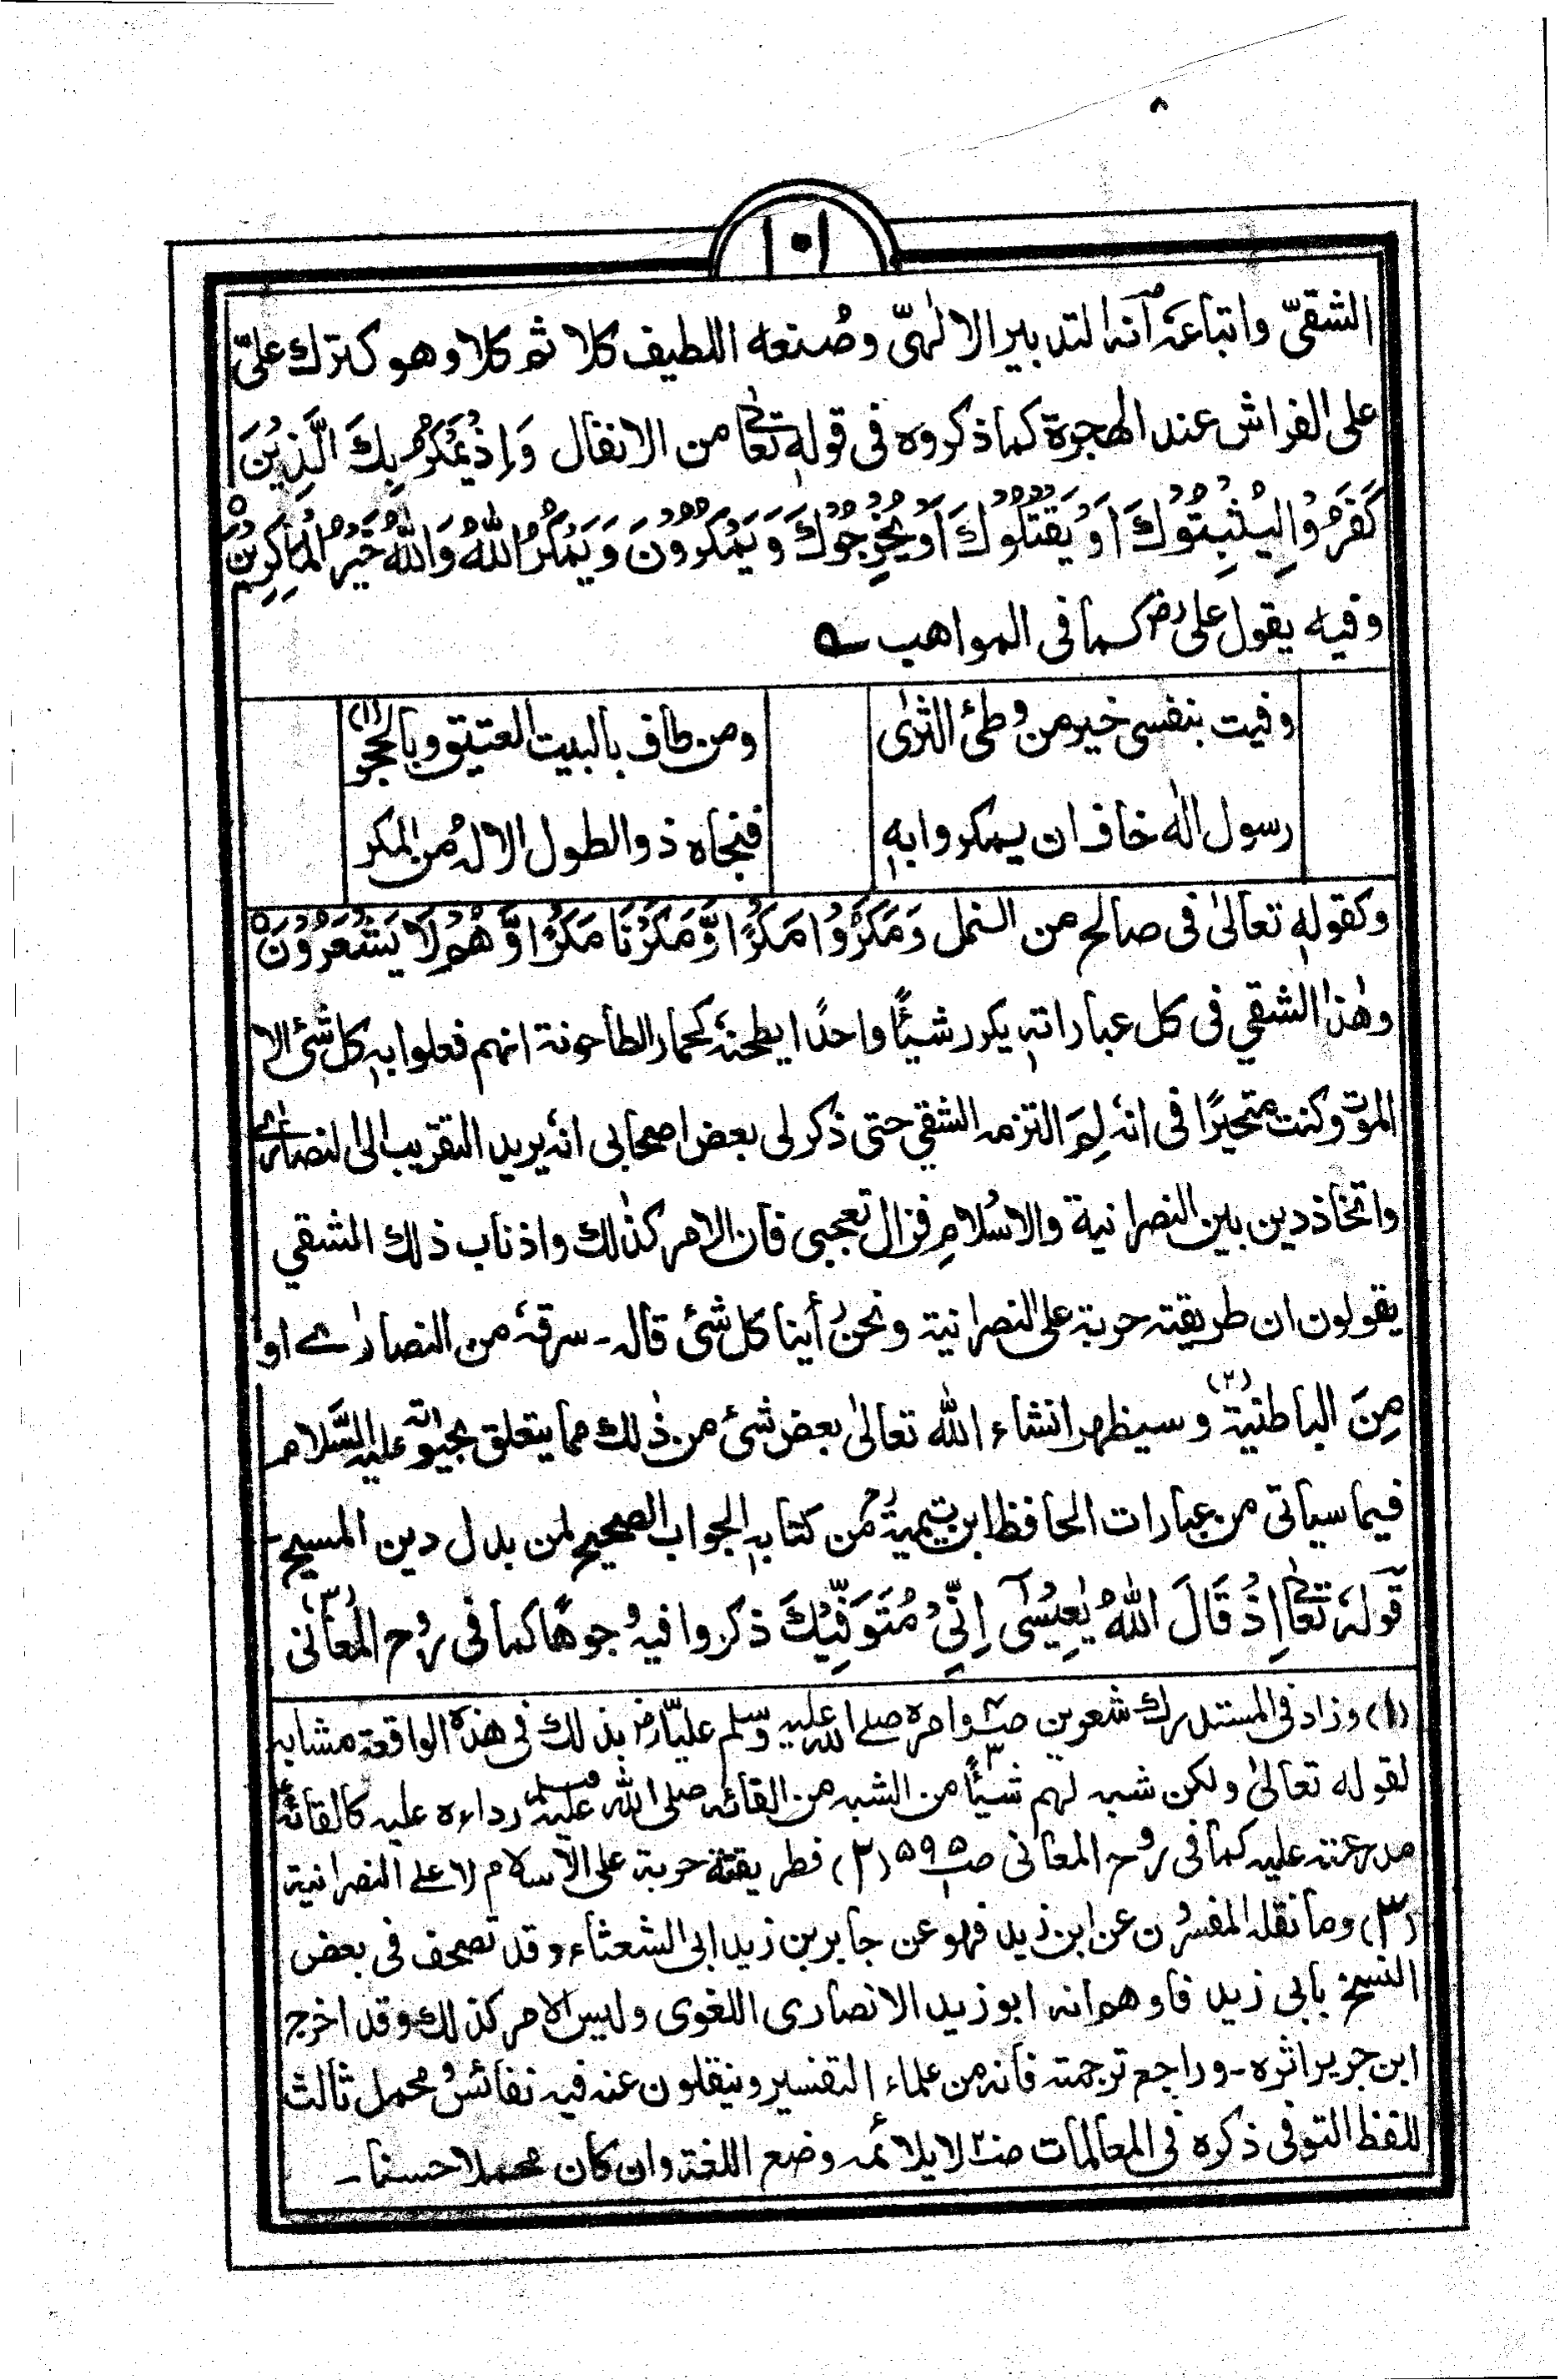 ١٠١
الشقیّ واتباعہ آنہ التدبیر الالٰہیّ وصُنعہ اللطیف کلا ثم کلا وھو کترك علیّ
علی الفراش عند الھجرۃ کما ذکروہ فی قولہٖ تعالیٰ من الانفال وَاِذْ یَمْكُرُ بِكَ الَّذِیْنَ
كَفَرُوْا لِیُثْبِتُوْكَ اَوْ یَقْتُلُوْكَ اَوْ یُخْرِجُوْكَ وَیَمْكُرُوْنَ وَیَمْكُرُ اللّٰهُ وَاللّٰهُ خَیْرُ الْمٰاكِرِیْنَ
وفیہ یقول علی رض کما فی المواھب ے
وفیت بنفسی خیر من وطئ الثرٰی ومن طاف بالبیت العتیق وبالحجر (١)
رسول الٰہ خاف ان یمکروا بہٖ فنجاہ ذو الطول الالٰہُ من المکر
وکقولہٖ تعالیٰ فی صالح من النمل وَمَكَرُوْا مَكْرًا وَّمَكَرْنَا مَكْرًا وَّھُمْ لَا یَشْعُرُوْنَ
وھٰذا الشقی فی کل عباراتہٖ یکرر شیئًا واحدًا یطحنہٗ کحمار الطاحونۃ انھم فعلوا بہٖ کل شئ الا
الموت وکنت متحیرًا فی انہٗ لِمَ التزمہ الشقی حتی ذکر لی بعض اصحابی انہٗ یرید التقریب الی النصارٰے
واتخاذ دین بین النصرانیۃ والاسلامِ فزال تعجبی فان الامر کذٰلك واذناب ذلك الشقی
یقولون ان طریقتہ حربۃ علی النصرانیۃ ونحن رأینا کل شئ قالہ ۔ سرقہٗ من النصارٰے او
مِنَ الباطنیۃ (٢) وسیظھر انشاء اللّٰہ تعالیٰ بعض شئ من ذٰلك مما یتعلق بحیوتہ علیہ السَّلام
فیما سیاتی من عبارات الحافظ ابن تیمیۃؒ من کتابہٖ الجواب الصحیح لمن بدل دین المسیح ۔
قولہٗ تعالیٰ اِذْ قَالَ اللّٰهُ یٰعِیْسٰٓی اِنِّیْ مُتَوَفِّیْكَ (٣) ذکروا فیہ وجوھًا کما فی روح المعانی
(١) وزاد فی المستدرك شعرین وامرہ صلے اللہ علیہ وسلم علیّا رض بذلك فی ھذہ الواقعۃ مشابہ
لقولہ تعالیٰ ولکن شبہ لھم شیئًا من الشبہ من القائہ صلی اللہ علیہ وسلم رداءہ علیہ کالقائہ
مدرعتہ علیہ کما فی روح المعانی ص ٥٩٥ (٢) فطریقتہ حربۃ علی الاسلام لا علے النصرانیۃ
(٣) وما نقلہ المفسرون عن ابن زید فھو عن جابر بن زید ابی الشعثاء وقد تصحف فی بعض
النسخ بابی زید فاوھم انہ ابو زید الانصاری اللغوی ولیس الامر کذلك وقد اخرج
ابن جریر اثرہ ۔ وراجع ترجمتہ فانہ من علماء التفسیر وینقلون عنہ فیہ نفائس ومحمل ثالث
للفظ التوفی ذکرہ فی المعالمات لا یلائمہ وضع اللغۃ وان کان محملا حسنا ۔